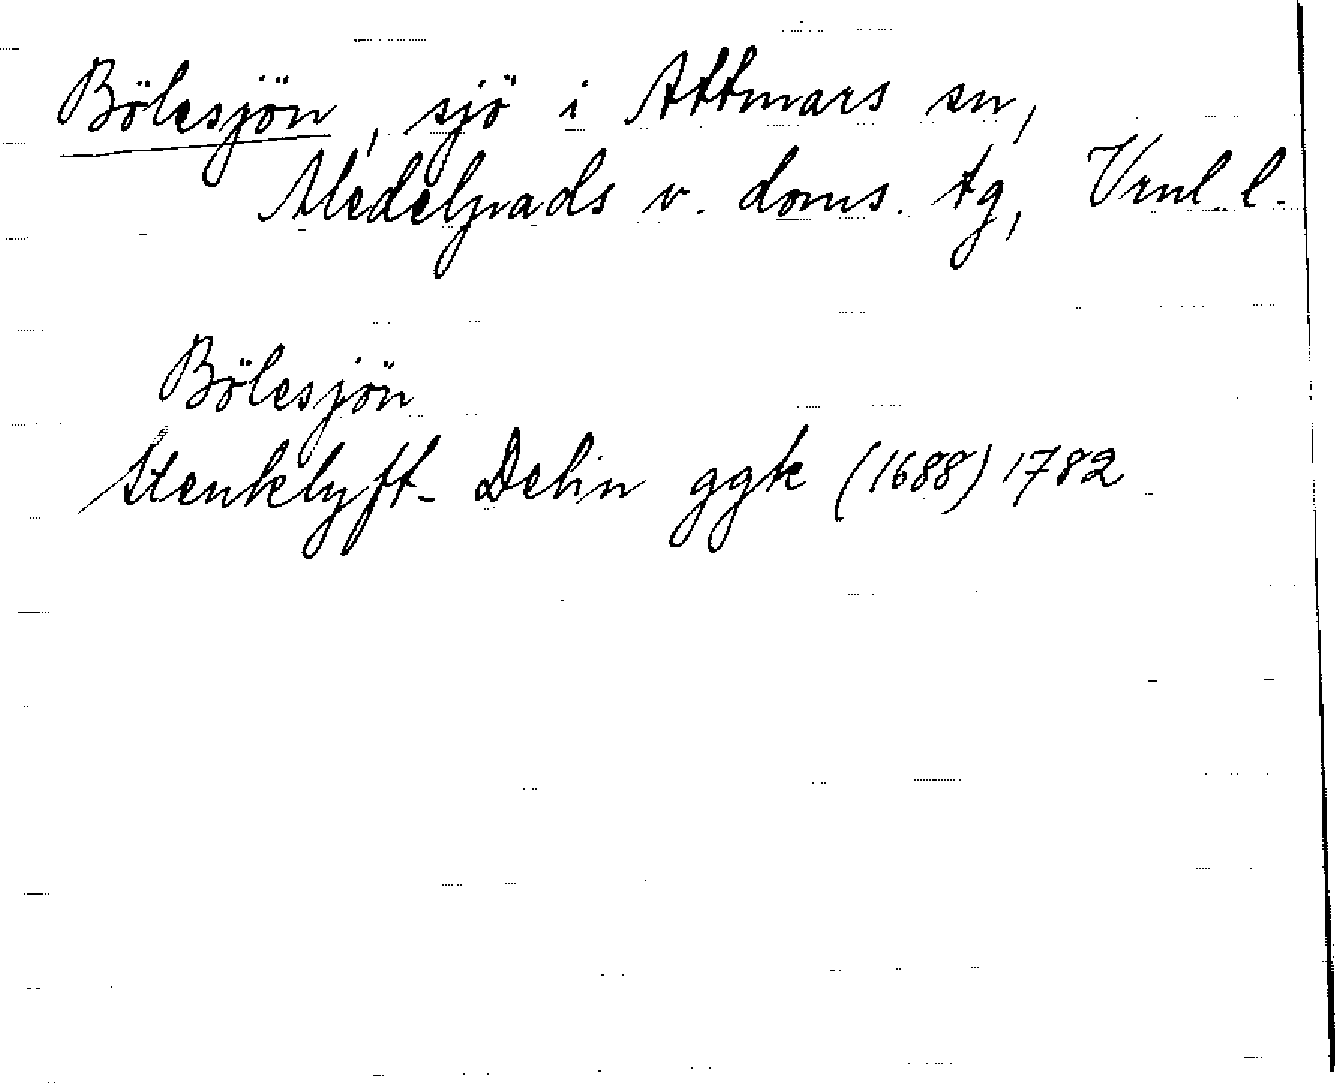 Bölesjön, sjö i Attmars sn,
Medelpads v. doms. tg, Vrnl. l.
Bölesjön
Stenklyft- Delin ggk (1688) 1782